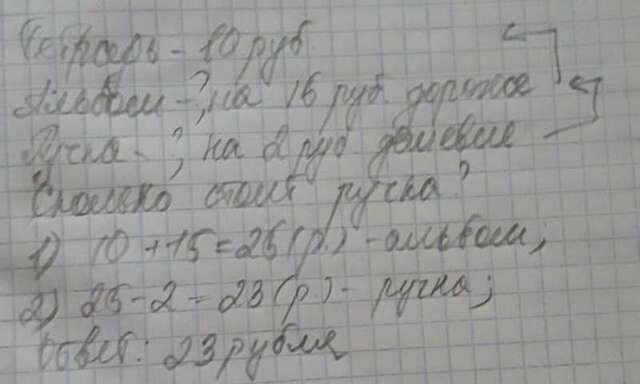 Тетрадь - 10 руб
Альбом - ?, на 15 руб. дороже
Ручка - ?, на 2 руб дешевле
Сколько стоит ручка?
1) 10 + 15 = 25 (р.) - альбом;
2) 25 - 2 = 23 (р.) - ручка;
Ответ: 23 рубля